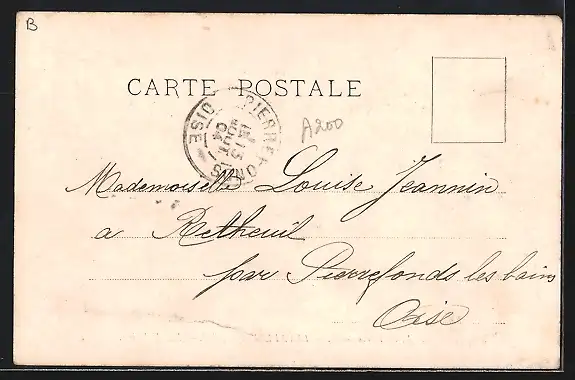 B
CARTE POSTALE
PIERREFONDS
OISE
13
AOUT
04
A200
Mademoiselle Louise Jeannin
a Retheuil
par Pierrefonds les bains
Oise